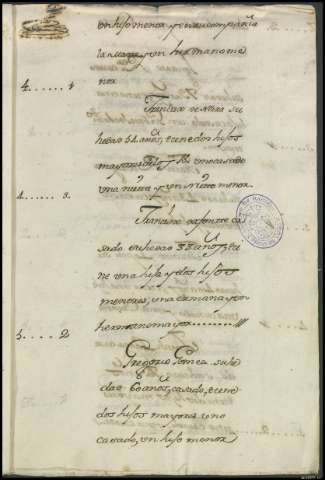 un hijo menor y en su compañia
la suegra y un hermano me
nor
4......1
Francisco de Mora su
hedad 51 años, tiene dos hijos
mayores el uno casado
una nuera y un nieto menor
4......3.
Francisco casado
su hedad 38 años tie
ne una hija y dos hijos
menores, una ermana y un
hermano mayor
5......2
Gregorio Gomez su he
dad 60 años, casado, tiene
dos hijos mayores uno
casado, un hijo menor